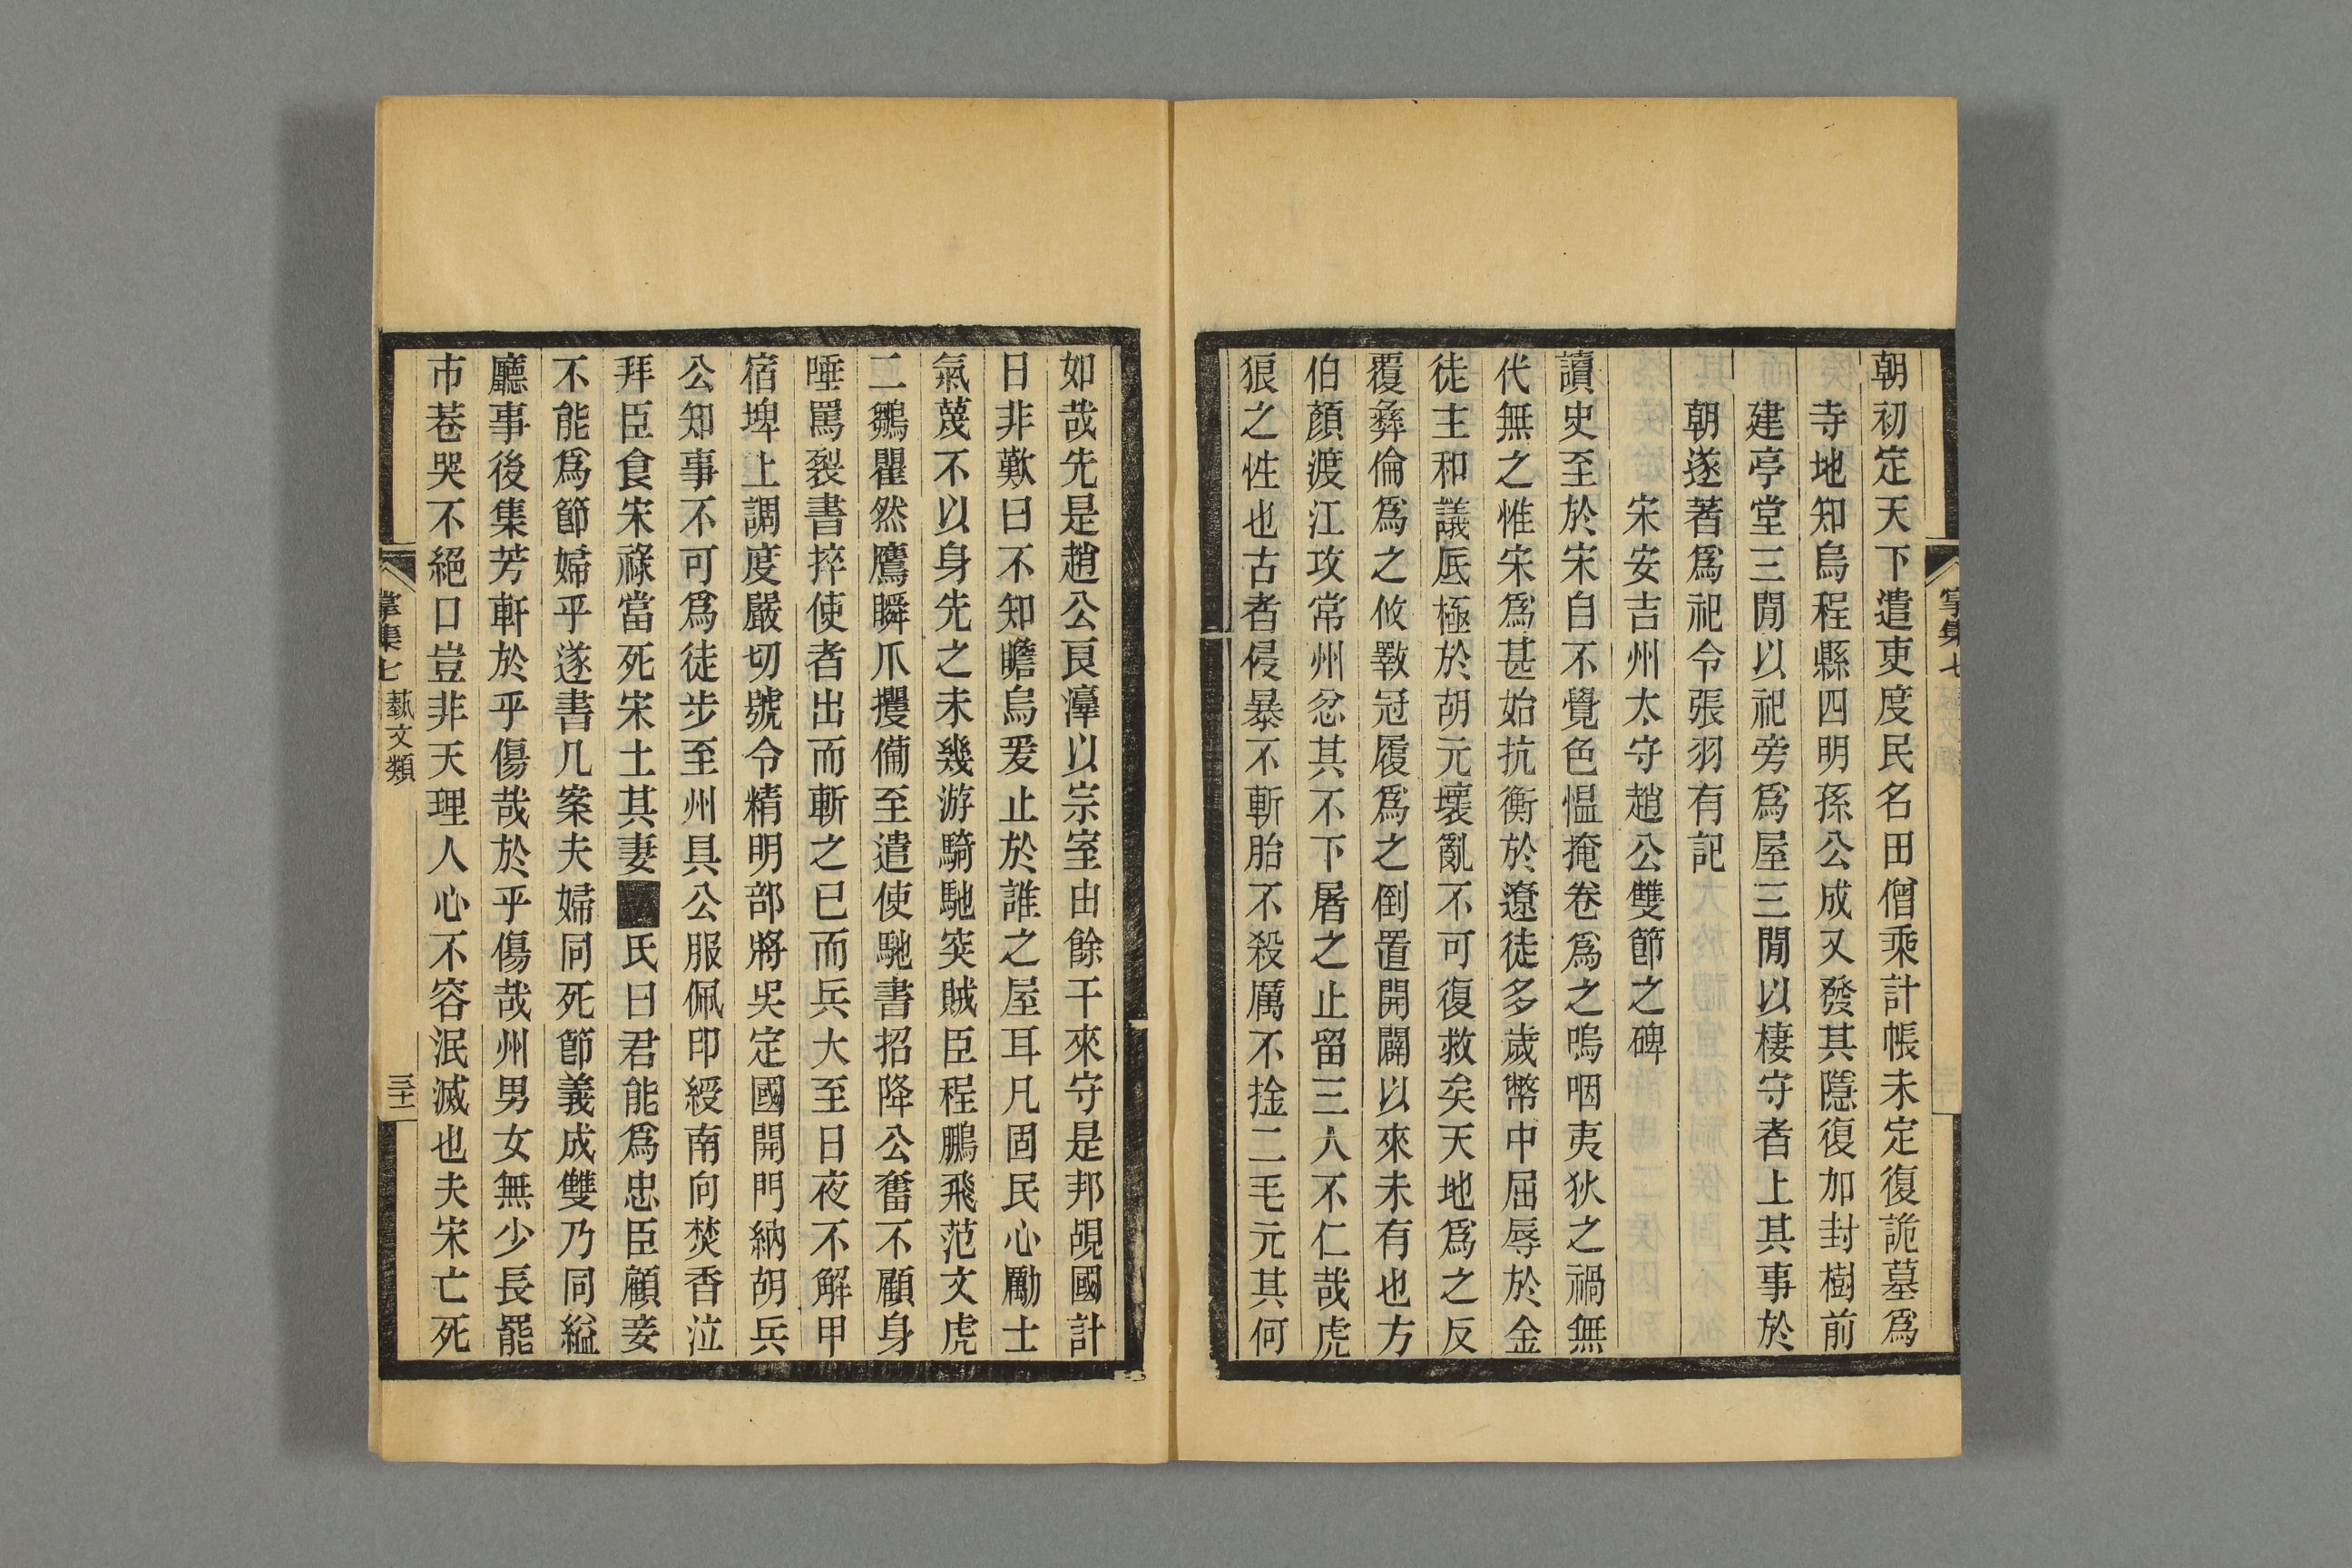 朝初定天下遣吏度民名田僧乘計帳未定復詭墓爲
寺地知烏程縣四明孫公成又發其隱復加封樹前
建亭堂三閒以祀旁爲屋三閒以棲守者上其事於
朝遂著爲祀令張羽有記
宋安吉州太守趙公雙節之碑
讀史至於宋自不覺色慍掩卷爲之嗚咽夷狄之禍無
代無之惟宋爲甚始抗衡於遼徒多歲幣中屈辱於金
徒主和議底極於胡元壞亂不可復救矣天地爲之反
覆彝倫爲之攸斁冠履爲之倒置開闢以來未有也方
伯顏渡江攻常州忿其不下屠之止留三人不仁哉虎
狼之性也古者侵暴不斬胎不殺厲不捡二毛元其何
如哉先是趙公良㵭以宗室由餘干來守是邦覘國計
日非歎曰不知瞻烏爰止於誰之屋耳凡固民心勵士
氣蔑不以身先之未幾游騎馳突賊臣程鵬飛范文虎
二鶵瞿然鷹瞬爪攫備至遣使馳書招降公奮不顧身
唾罵裂書捽使者出而斬之已而兵大至日夜不解甲
宿埤上調度嚴切號令精明部將吳定國開門納胡兵
公知事不可爲徒步至州具公服佩印綬南向焚香泣
拜臣食宋祿當死宋土其妻■氏曰君能爲忠臣顧妾
不能爲節婦乎遂書几案夫婦同死節義成雙乃同縊
廳事後集芳軒於乎傷哉於乎傷哉州男女無少長罷
市巷哭不絕口豈非天理人心不容泯滅也夫宋亡死
掌集七 藝文類 三十一